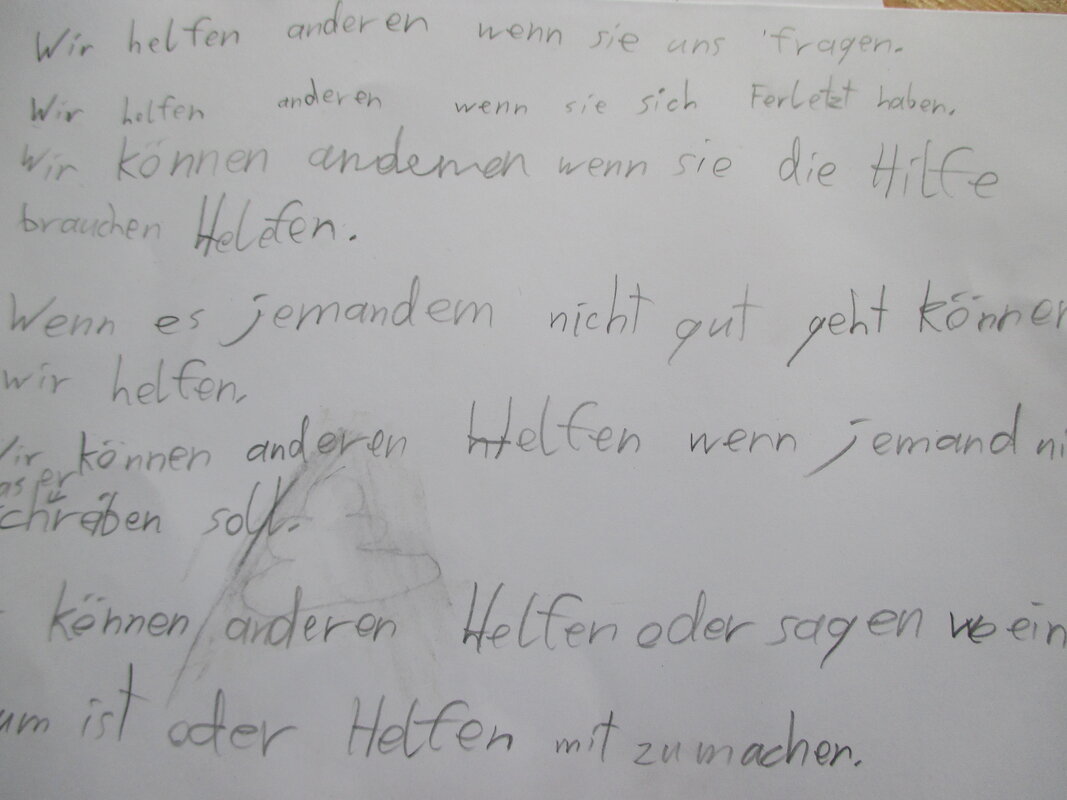 Wir helfen anderen wenn sie uns fragen.
Wir helfen anderen wenn sie sich Ferletzt haben.
Wir können andemen wenn sie die Hilfe
brauchen Helefen.
Wenn es jemandem nicht gut geht können
wir helfen.
Wir können anderen Helfen wenn jemand ni
as er
schreiben soll.
können anderen Helfen oder sagen wo ein
um ist oder Helfen mit zu machen.